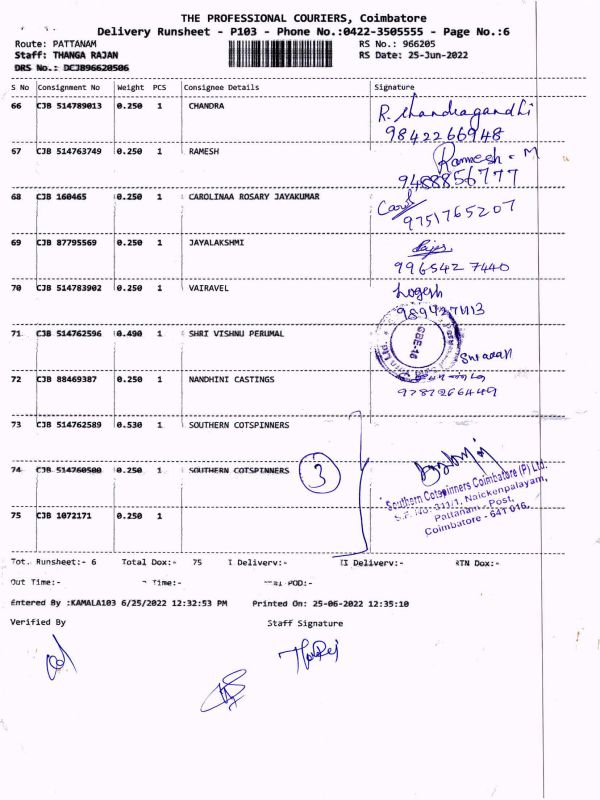 THE PROFESSIONAL COURIERS, Coimbatore
Delivery Runsheet - P103 - Phone No.:0422-3505555 - Page No.:6
Route: PATTANAM RS No.: 966205
Staff: THANGA RAJAN RS Date: 25-Jun-2022
DRS No.: DCJB96620506
S No Consignment No Weight PCS Consignee Details Signature
66 CJB 514789013 0.250 1 CHANDRA R. Chandragandhi
9842266948
67 CJB 514763749 0.250 1 RAMESH Ramesh - M
9488856777
68 CJB 160465 0.250 1 CAROLINAA ROSARY JAYAKUMAR Carol
9751765207
69 CJB 87795569 0.250 1 JAYALAKSHMI
9965427440
70 CJB 514783902 0.250 1 VAIRAVEL Logesh
CBE-16
71 CJB 514762596 0.490 1 SHRI VISHNU PERUMAL
72 CJB 88469387 0.250 1 NANDHINI CASTINGS
9787266449
73 CJB 514762589 0.530 1 SOUTHERN COTSPINNERS
74 CJB 514760500 0.250 1 SOUTHERN COTSPINNERS 3
Southern Cotspinners Coimbatore (P) Ltd.
S.F. No: 311/1, Naickenpalayam,
Pattanam - Post,
Coimbatore - 641 016.
75 CJB 1072171 0.250 1
Tot. Runsheet:- 6 Total Dox:- 75 I Delivery:- II Delivery:- RTN Dox:-
Out Time:- Time:- POD:-
Entered By :KAMALA103 6/25/2022 12:32:53 PM Printed On: 25-06-2022 12:35:10
Verified By Staff Signature